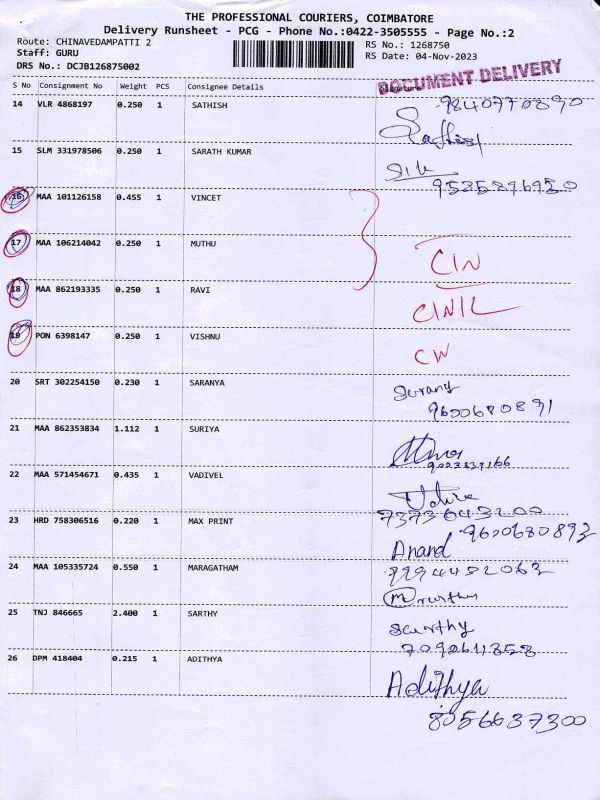 THE PROFESSIONAL COURIERS, COIMBATORE
Delivery Runsheet - PCG - Phone No.:0422-3505555 - Page No.:2
Route: CHINAVEDAMPATTI 2
Staff: GURU
DRS No.: DCJB126875002
RS No.: 1268750
RS Date: 04-Nov-2023
DOCUMENT DELIVERY
S No Consignment No Weight PCS Consignee Details Signature
14 VLR 4868197 0.250 1 SATHISH 9840770890
15 SLM 331978506 0.250 1 SARATH KUMAR
16 MAA 101126158 0.455 1 VINCET
17 MAA 106214042 0.250 1 MUTHU CIN
18 MAA 862193335 0.250 1 RAVI
19 PON 6398147 0.250 1 VISHNU
20 SRT 302254150 0.230 1 SARANYA
9600680891
21 MAA 862353834 1.112 1 SURIYA
22 MAA 571454671 0.435 1 VADIVEL
23 HRD 758306516 0.220 1 MAX PRINT 9600680893
Anand
24 MAA 105335724 0.550 1 MARAGATHAM
25 TNJ 846665 2.400 1 SARTHY
26 DPM 418404 0.215 1 ADITHYA
Adithya
8056637300